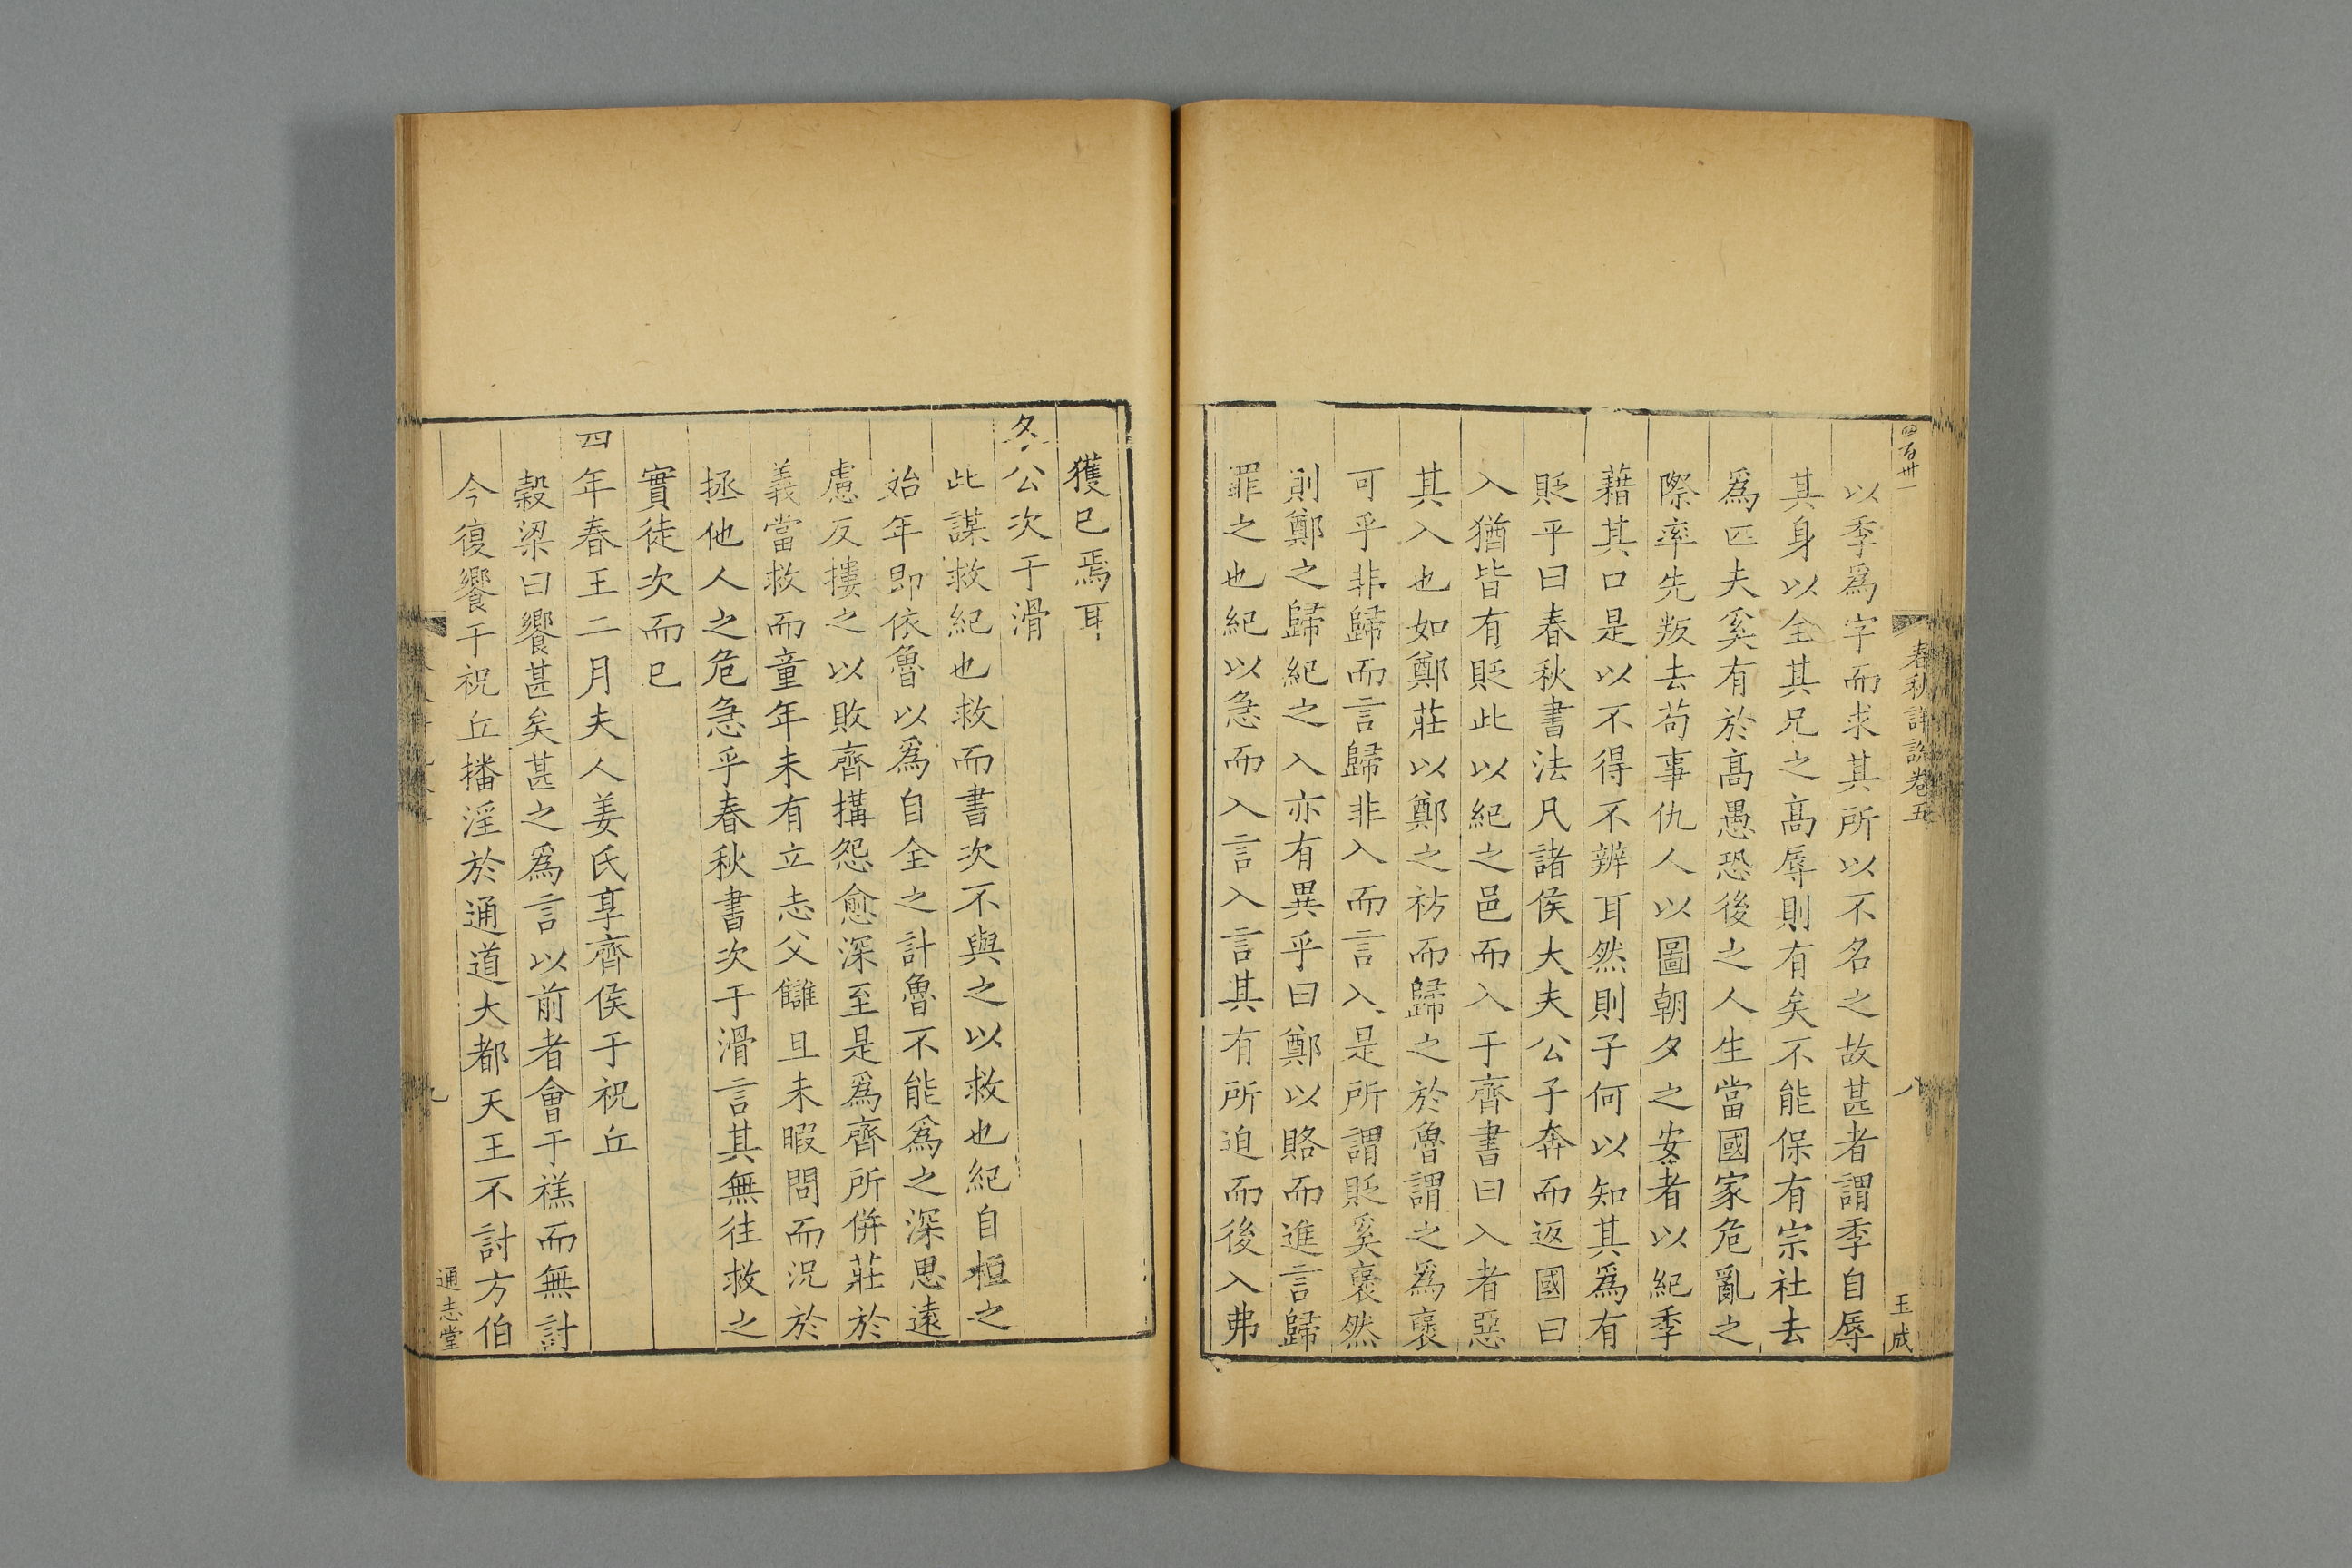 四百卅一
春秋詳說卷五
八
玉成
以季爲字而求其所以不名之故甚者謂季自辱
其身以全其兄之髙辱則有矣不能保有宗社去
爲匹夫奚有於髙愚恐後之人生當國家危亂之
際率先叛去苟事仇人以圖朝夕之安者以紀季
藉其口是以不得不辨耳然則子何以知其爲有
貶乎曰春秋書法凡諸侯大夫公子奔而返國曰
入猶皆有貶此以紀之邑而入于齊書曰入者惡
其入也如鄭莊以鄭之祊而歸之於魯謂之爲襃
可乎非歸而言歸非入而言入是所謂貶奚襃然
則鄭之歸紀之入亦有異乎曰鄭以賂而進言歸
罪之也紀以急而入言入言其有所迫而後入弗
獲已焉耳
冬公次于滑
此謀救紀也救而書次不與之以救也紀自桓之
始年即依魯以爲自全之計魯不能爲之深思遠
慮反摟之以敗齊搆怨愈深至是爲齊所併莊於
義當救而童年未有立志父讎且未暇問而況於
拯他人之危急乎春秋書次于滑言其無往救之
實徒次而已
四年春王二月夫人姜氏享齊侯于祝丘
榖梁曰饗甚矣甚之爲言以前者會于禚而無討
今復饗于祝丘播淫於通道大都天王不討方伯
九
通志堂